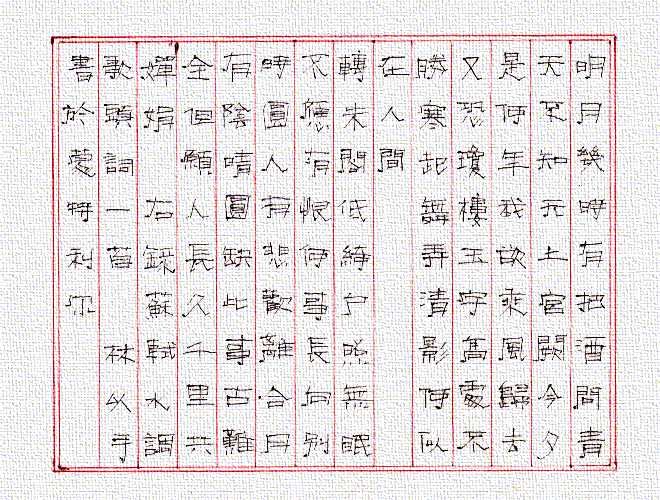 明月幾時有把酒問青
天不知天上宮闕今夕
是何年我欲乘風歸去
又恐瓊樓玉宇高處不
勝寒起舞弄清影何似
在人間
轉朱閣低綺戶照無眠
不應有恨何事長向別
時圓人有悲歡離合月
有陰晴圓缺此事古難
全但願人長久千里共
嬋娟 右錄蘇軾水調
歌頭詞一首 林 手
書於蒙特利尔